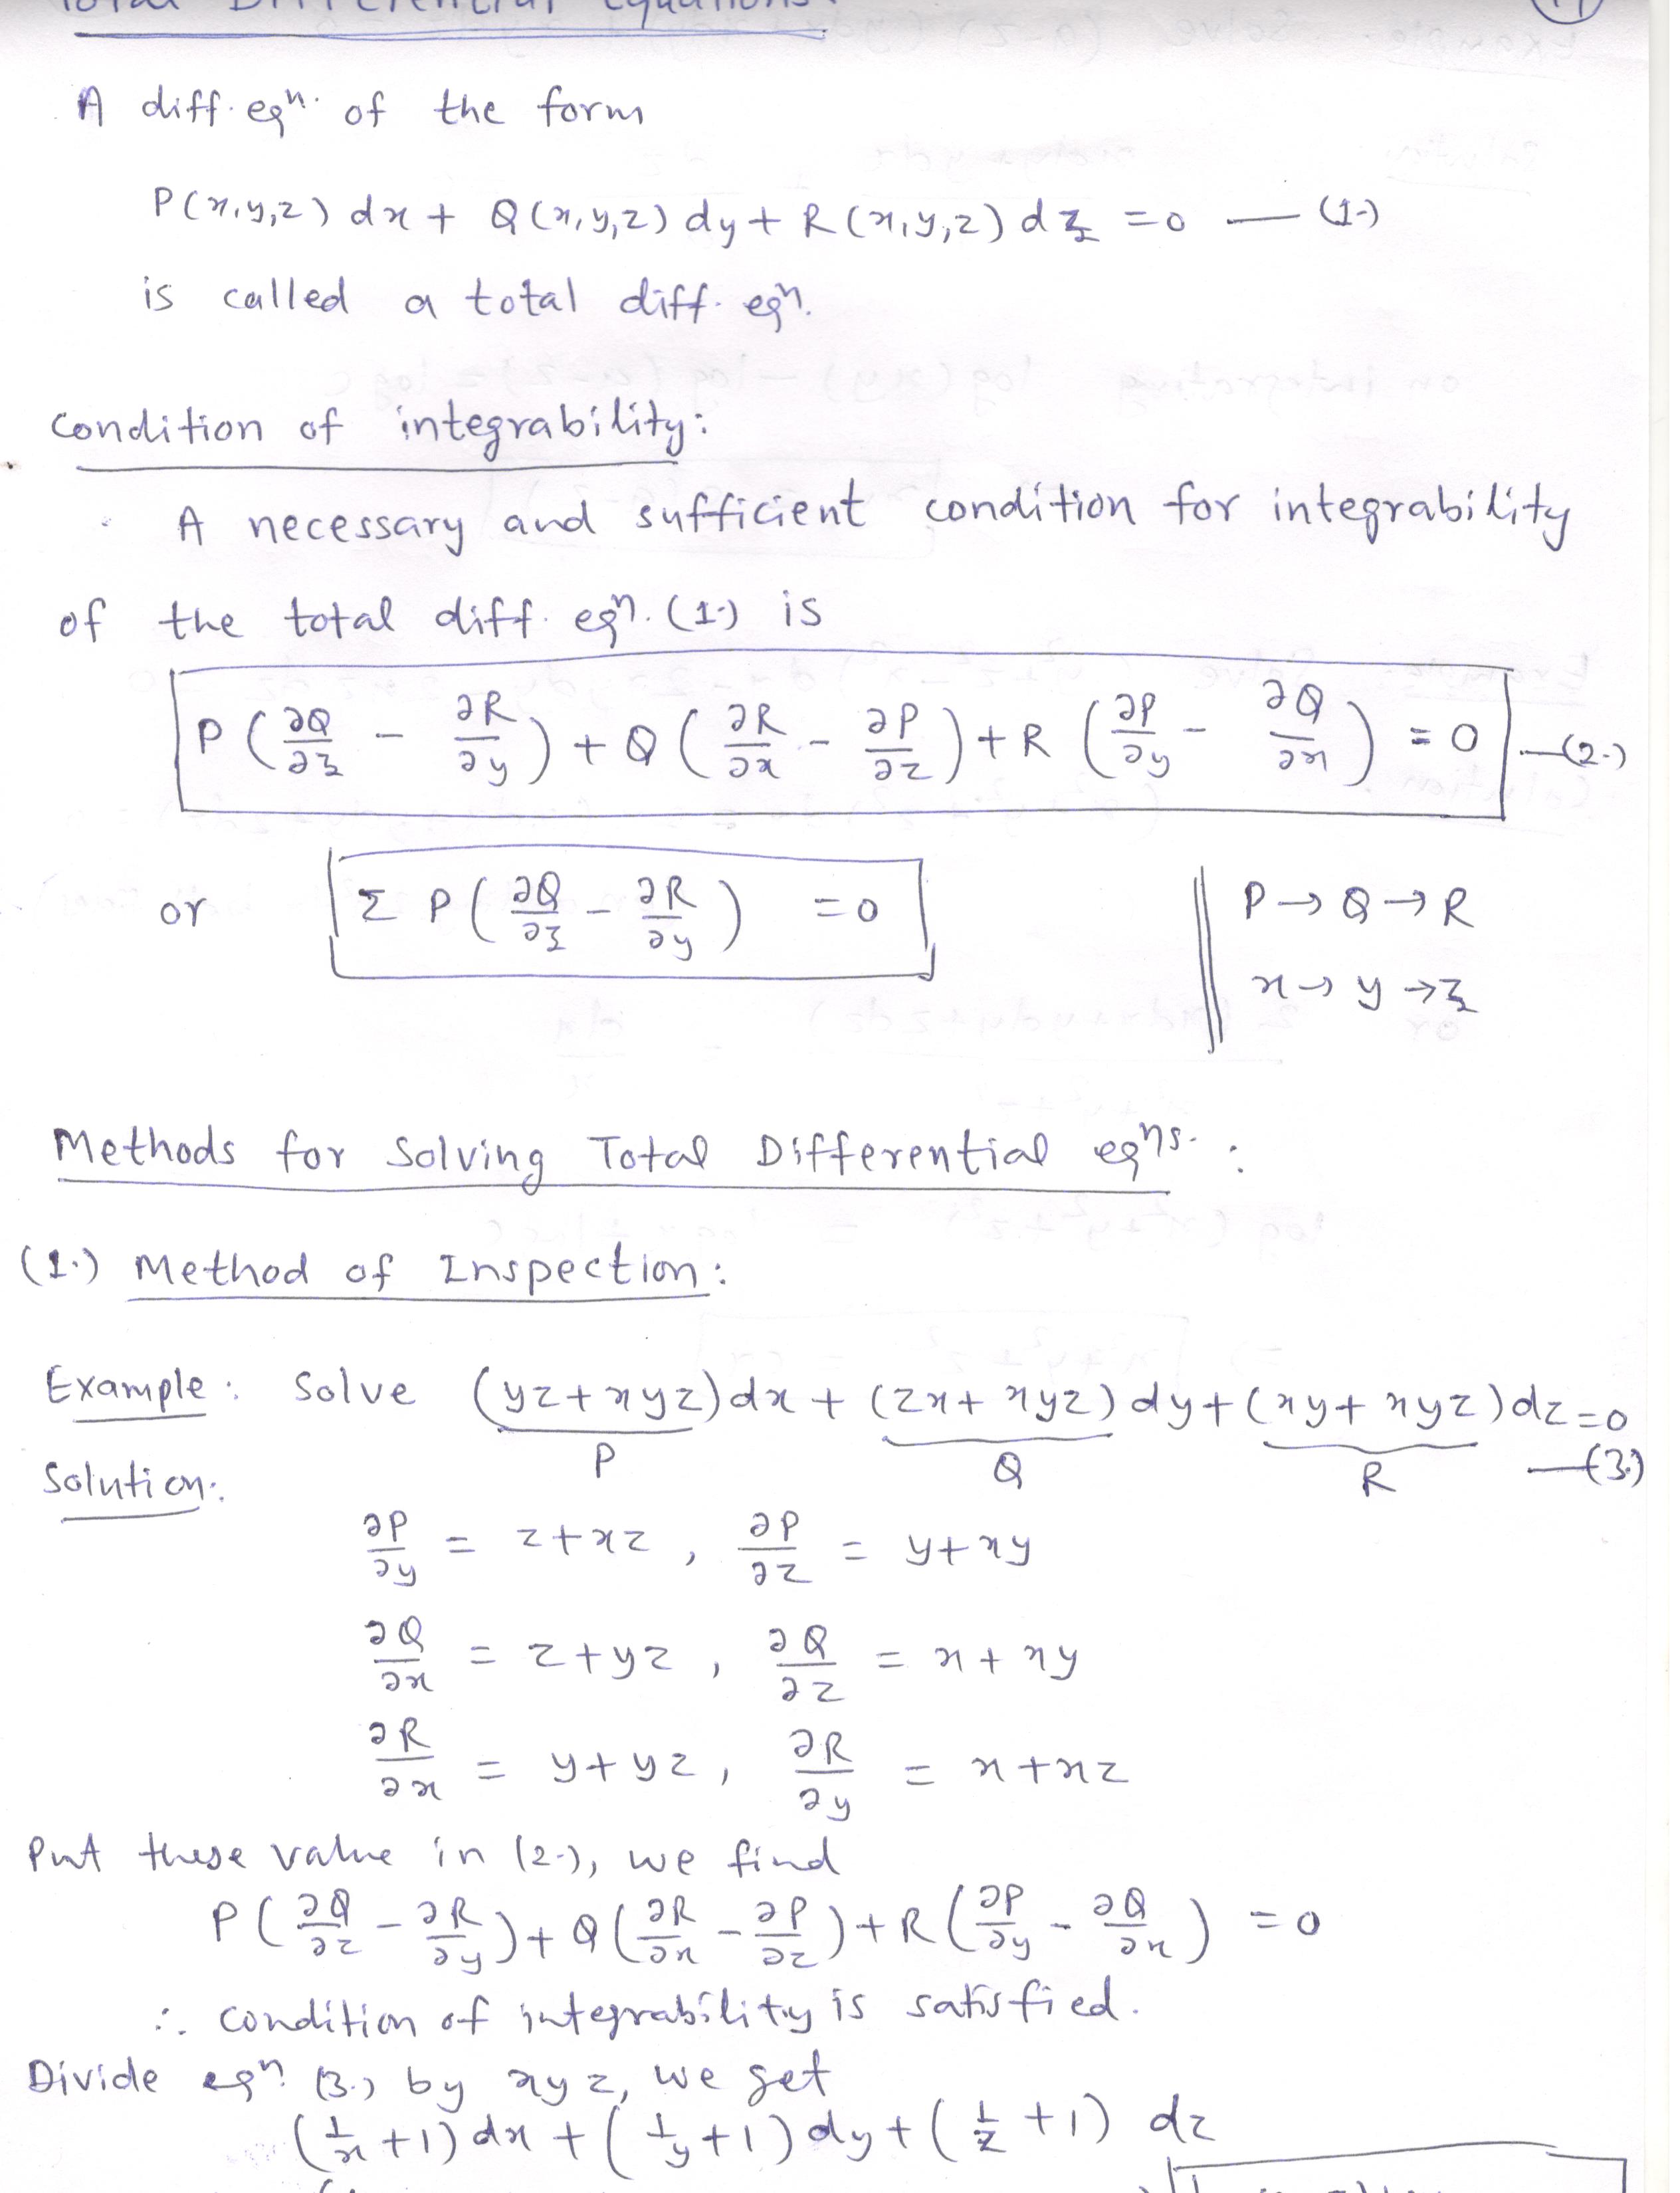 Total Differential Equations:
A diff. eqn. of the form
P(x,y,z) dx + Q(x,y,z) dy + R(x,y,z) dz = 0 — (1.)
is called a total diff. eqn.
Condition of integrability:
A necessary and sufficient condition for integrability
of the total diff. eqn. (1.) is
P (∂Q/∂z - ∂R/∂y) + Q (∂R/∂x - ∂P/∂z) + R (∂P/∂y - ∂Q/∂x) = 0 — (2.)
or Σ P (∂Q/∂z - ∂R/∂y) = 0 P → Q → R
x → y → z
Methods for Solving Total Differential eqns. :
(1.) Method of Inspection:
Example: Solve (yz + xyz) dx + (zx + xyz) dy + (xy + xyz) dz = 0
P Q R — (3.)
Solution:
∂P/∂y = z + xz , ∂P/∂z = y + xy
∂Q/∂x = z + yz , ∂Q/∂z = x + xy
∂R/∂x = y + yz , ∂R/∂y = x + xz
Put these value in (2.), we find
P (∂Q/∂z - ∂R/∂y) + Q (∂R/∂x - ∂P/∂z) + R (∂P/∂y - ∂Q/∂x) = 0
∴ condition of integrability is satisfied.
Divide eqn. (3.) by xyz, we get
(1/x + 1) dx + (1/y + 1) dy + (1/z + 1) dz